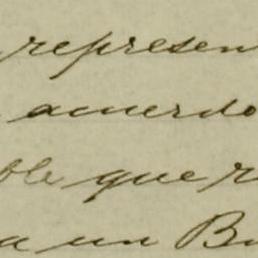 represen
acuerdo
ble que r
a un B